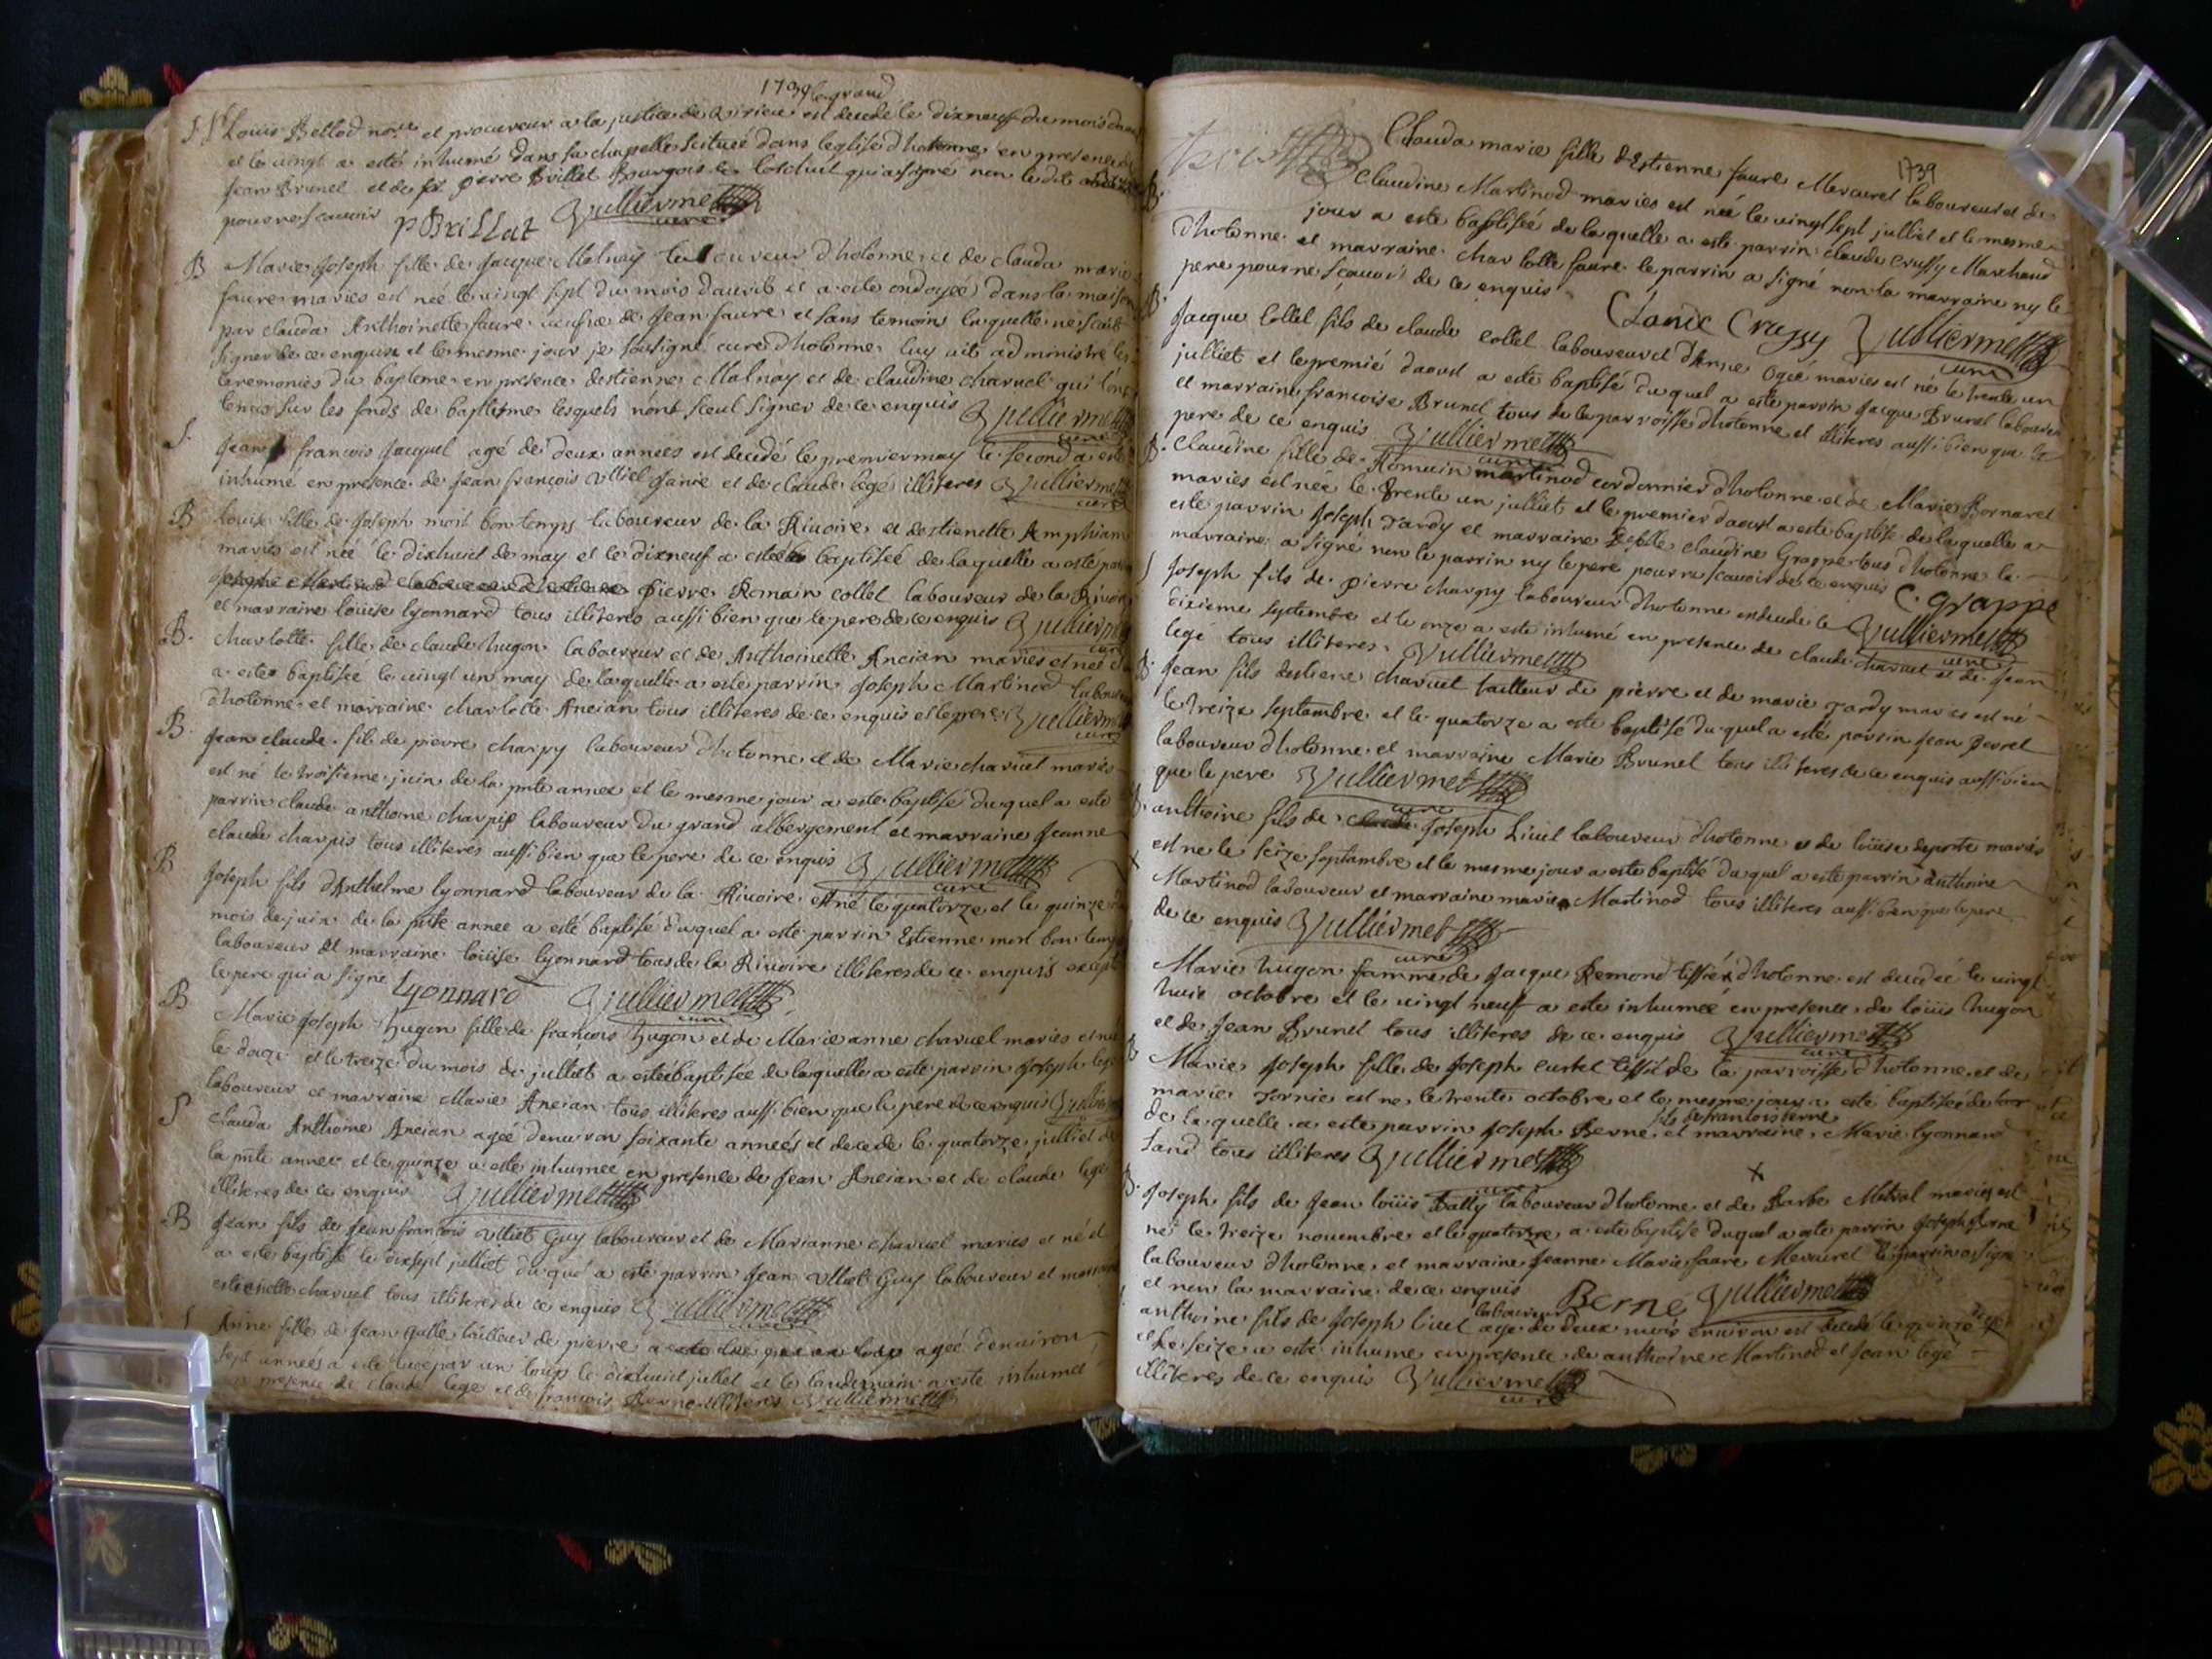 1739
S. Sr Louis Bellod nore et procureur a la justice de Virieu est decedé le dixneuf du mois
et le vingt a esté inhumé dans sa chapelle scituée dans leglise dhotonne en presence
Jean Brunel et de sr pierre Brillat Bourgois qui a signé non ledit
pour ne scavoir PBrillat Vulliermet curé
B Marie Joseph fille de Jacque Malnay laboureur dhotonne et de clauda marie
faure maries est née le vingt sept du mois davril et a este ondoyée dans la maison
par clauda Anthoinette faure veufve de Jean faure et sans temoin laquelle ne scait
signer de ce enquise et le mesme jour je sousigné curé dhotonne luy ait administré les
ceremonies du bapteme en presence destienne Malnay et de claudine charvet qui lont
tenus sur les fonds de baptisme lesquels nont sceut signer de ce enquis Vulliermet curé
S. Jean francois Jacquet agé de deux années est decedé le premier may le second a esté
inhumé en presence de Jean francois Janie et de claude legé illiteres Vulliermet curé
B Louise fille de Joseph mort bon temps laboureur de la Rivoire et destienette Amphian
maries est née le dixhuict de may et le dixneuf a esté baptisée de laquelle a esté
pierre Romain collet laboureur de la Rivoire
et marraine louise lyonnard tous illiteres aussi bien que le pere de ce enquis Vulliermet curé
B. charlotte fille de claude hugon laboureur et de Anthoinette Ancian mariés est née
a este baptisée le vingt un may de laquelle a este parrin Joseph Martinod
dhotonne et marraine charlotte Ancian tous illiteres de ce enquis et le pere Vulliermet curé
B. Jean claude fils de pierre charpy laboureur dhotonne et de Marie charvet mariés
est né le troisieme juin de la pnte annee et le mesme jour a este baptisé duquel a esté
parrin claude anthoine charpis laboureur du grand albergement et marraine Jeanne
claude charpis tous illiteres aussi bien que le pere de ce enquis Vulliermet curé
B Joseph fils dAnthelme lyonnard laboureur de la Rivoire est né le quatorze et le quinze
mois de juin de la pnte annee a esté baptisé duquel a esté parrin Estienne mort bon temps
laboureur et marraine louise lyonnard tous de la Rivoire illiteres de ce enquis excepté
le pere qui a signé Lyonnard Vulliermet curé
B Marie Joseph hugon fille de francois hugon et de Marie anne charvet maries est née
le douze et le treize du mois de julliet a esté baptisée de laquelle a este parrin Joseph legé
laboureur et marraine Marie Ancian tous illiteres aussi bien que le pere de ce enquis
S clauda Anthoine Ancian agée denviron soixante années et decede le quatorze julliet de
la pnte annee et le quinze a este inhumee en presence de Jean Ancian et de claude legé
illiteres de ce enquis Vulliermet
B Jean fils de Jean francois Guy laboureur et de Marianne charvet maries et né et
a este baptisé le dixsept julliet duqué a esté parrin Jean Guy laboureur et marraine
estienette charvet tous illiteres de ce enquis Vulliermet curé
S Anne fille de Jean tailleur de pierre agée denviron
sept années a esté tuée par un loup le dixhuict julliet et le landemain a este inhumeé
en presence de claude legé et de francois Berne illiteres Vulliermet
1739
B. Clauda marie fille dEstienne faure Mercuret laboureur et de
Claudine Martinod maries est née le vingt sept julliet et le mesme
jour a este baptisée de laquelle a este parrin claude crussy Marchand
dhotonne et marraine charlotte faure le parrin a signé non la marraine ny le
pere pour ne scavoir de ce enquis Claude Crussy Vulliermet curé
B. Jacque Collet fils de claude collet laboureur et dAnne Ogée maries est né le trente un
julliet et le premié daoust a este baptisé duquel a este parrin Jacque Brunel laboureur
et marraine francoise Brunel tous de la parroisse dhotonne et illiteres aussi bien que le
pere de ce enquis Vulliermet curé
B. Claudine fille de Romain martinod cordonnier dhotonne et de Marie Bornaret
maries est née le trente un julliet et le premier daoust a este baptisé de laquelle a
este parrin Joseph Tardy et marraine claudine Grappe tous dhotonne la
marraine a signé non le parrin ny le pere pour ne scavoir de ce enquis C. grappe
S Joseph fils de pierre charpy laboureur dhotonne est decedé le Vulliermet curé
dixieme septembre et le onze a este inhumé en presence de claude charvet et de Jean
legé tous illiteres. Vulliermet
B. Jean fils destiene charvet tailleur de pierre et de marie Tardy maries est né
le treize septambre et le quatorze a este baptisé duquel a esté parrin Jean
laboureur dhotonne et marraine Marie Brunel tous illiteres de ce enquis aussi bien
que le pere Vulliermet curé
B. anthoine fils de Joseph Livet laboureur dhotonne et de louise deporte mariés
est ne le seize septambre et le mesme jour a este baptisé duquel a este parrin anthoine
Martinod laboureur et marraine marie Martinod tous illiteres aussi bien que le pere
de ce enquis Vulliermet curé
Marie hugon famme de Jacque Remond tissier dhotonne est decedée le vingt
huit octobre et le vingt neuf a este inhumeé en presence de louis hugon
et de Jean Brunel tous illiteres de ce enquis Vulliermet curé
B Marie Joseph fille de Joseph de la parroisse dhotonne et de
marie est ne le trente octobre et le mesme jour a esté baptisée
fils de francois berne
de laquelle a este parrin Joseph Berne et marraine Marie lyonnard
tous illiteres Vulliermet curé
B. Joseph fils de Jean louis Bally laboureur dhotonne et de Barbe Mitral maries est
né le treize novembre et le quatorze a este baptisé duquel a este parrin Joseph Berne
laboureur dhotonne et marraine Jeanne Marie faure Mercuret le parrin a signé
et non la marraine de ce enquis Berné Vulliermet
laboureur
anthoine fils de Joseph livet age de deux mois environ est decedé le quinze
et le seize a esté inhumé en presence de anthoine Martinod et Jean legé
illiteres de ce enquis Vulliermet curé